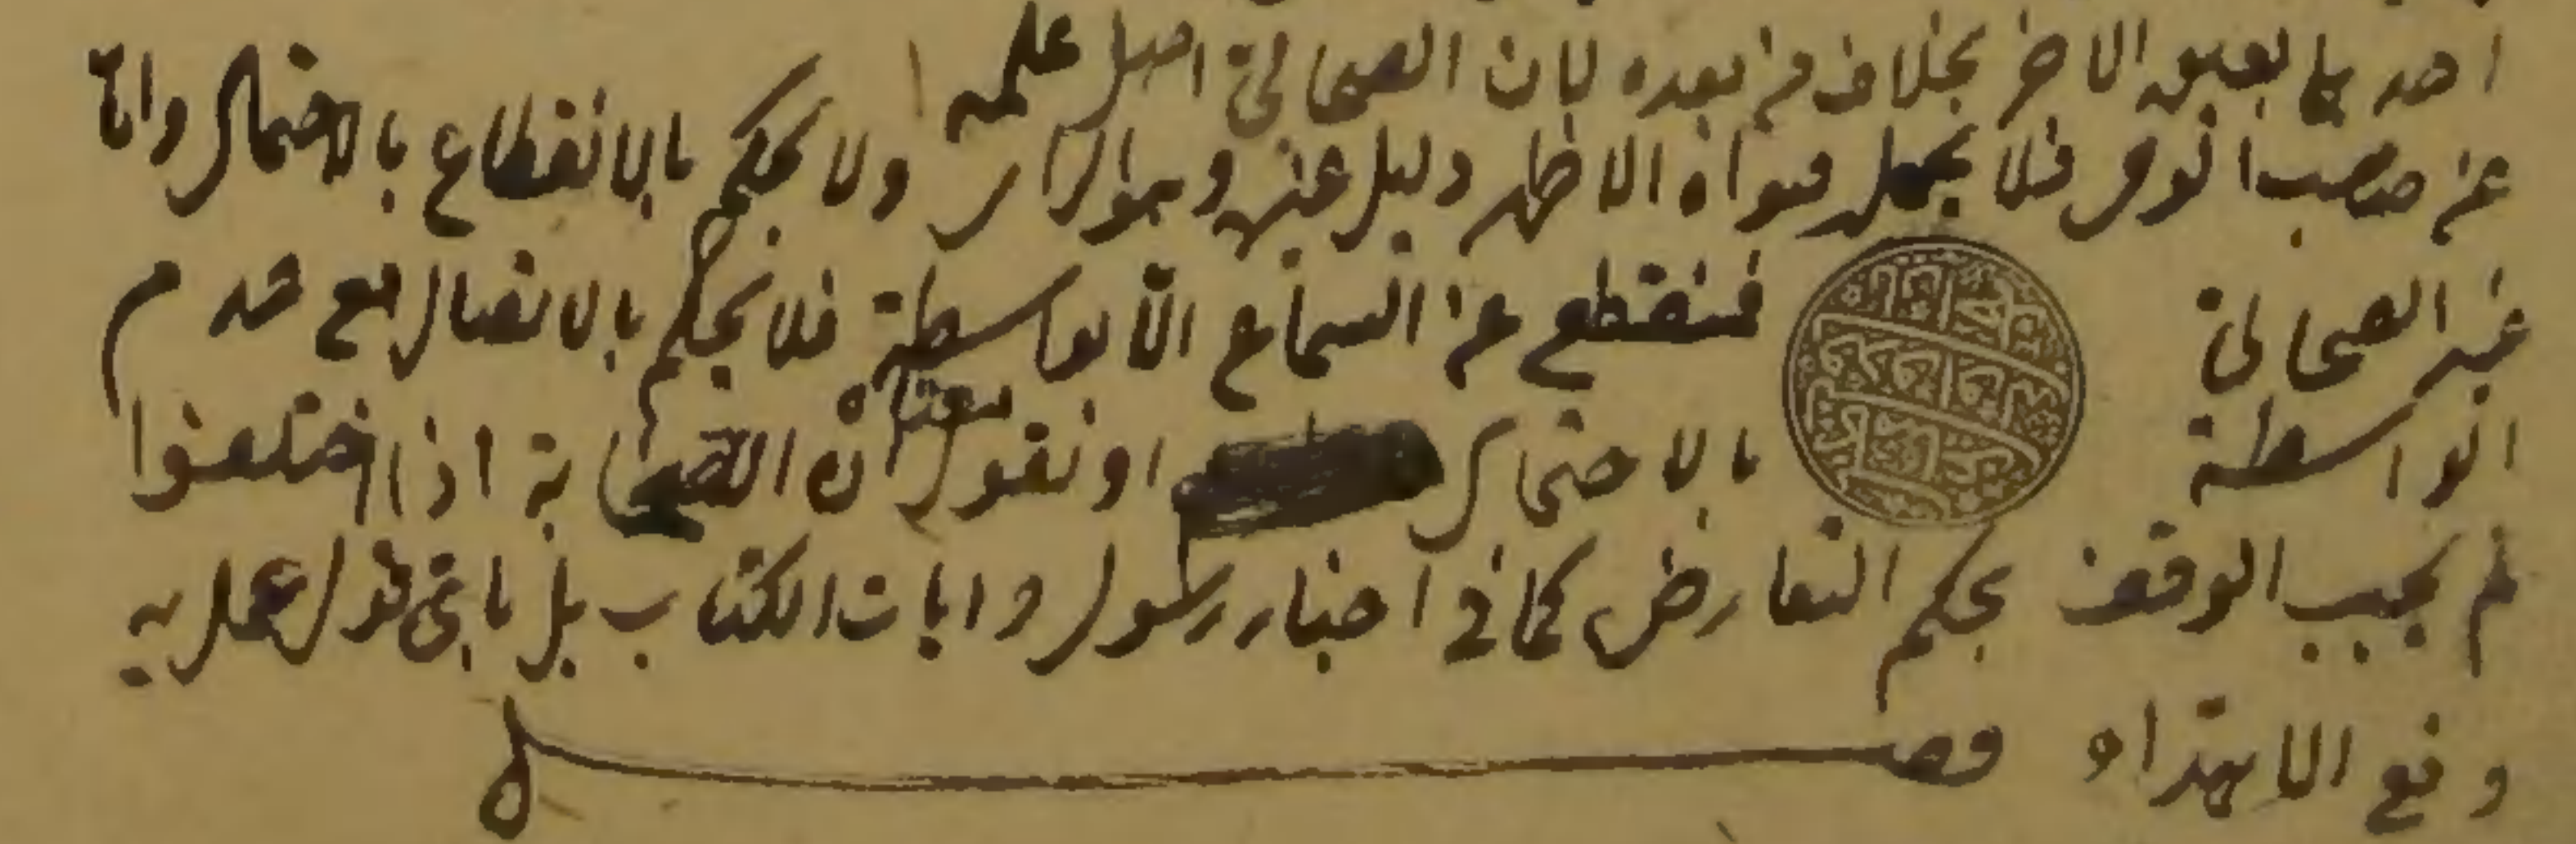 احدهما بعض الاخر بخلاف من بعده لان الصحابي اصل علمه
عن صاحب الوحي فلا يجعل فتواه الا ظهر دليل عنه وهو الراي ولا يحكم بالانقطاع بالاحتمال واما
غير الصحابي فمنقطع عن السماع الا بواسطة فلا يحكم بالاتصال مع عدم
الواسطة بالاحتمال او نقول معناه ان الصحابة اذا اختلفوا
لم يجب الوقف بحكم التعارض كما في اخبار رسول وايات الكتاب بل باي قول عمل به
وقع الاهتداء فصل